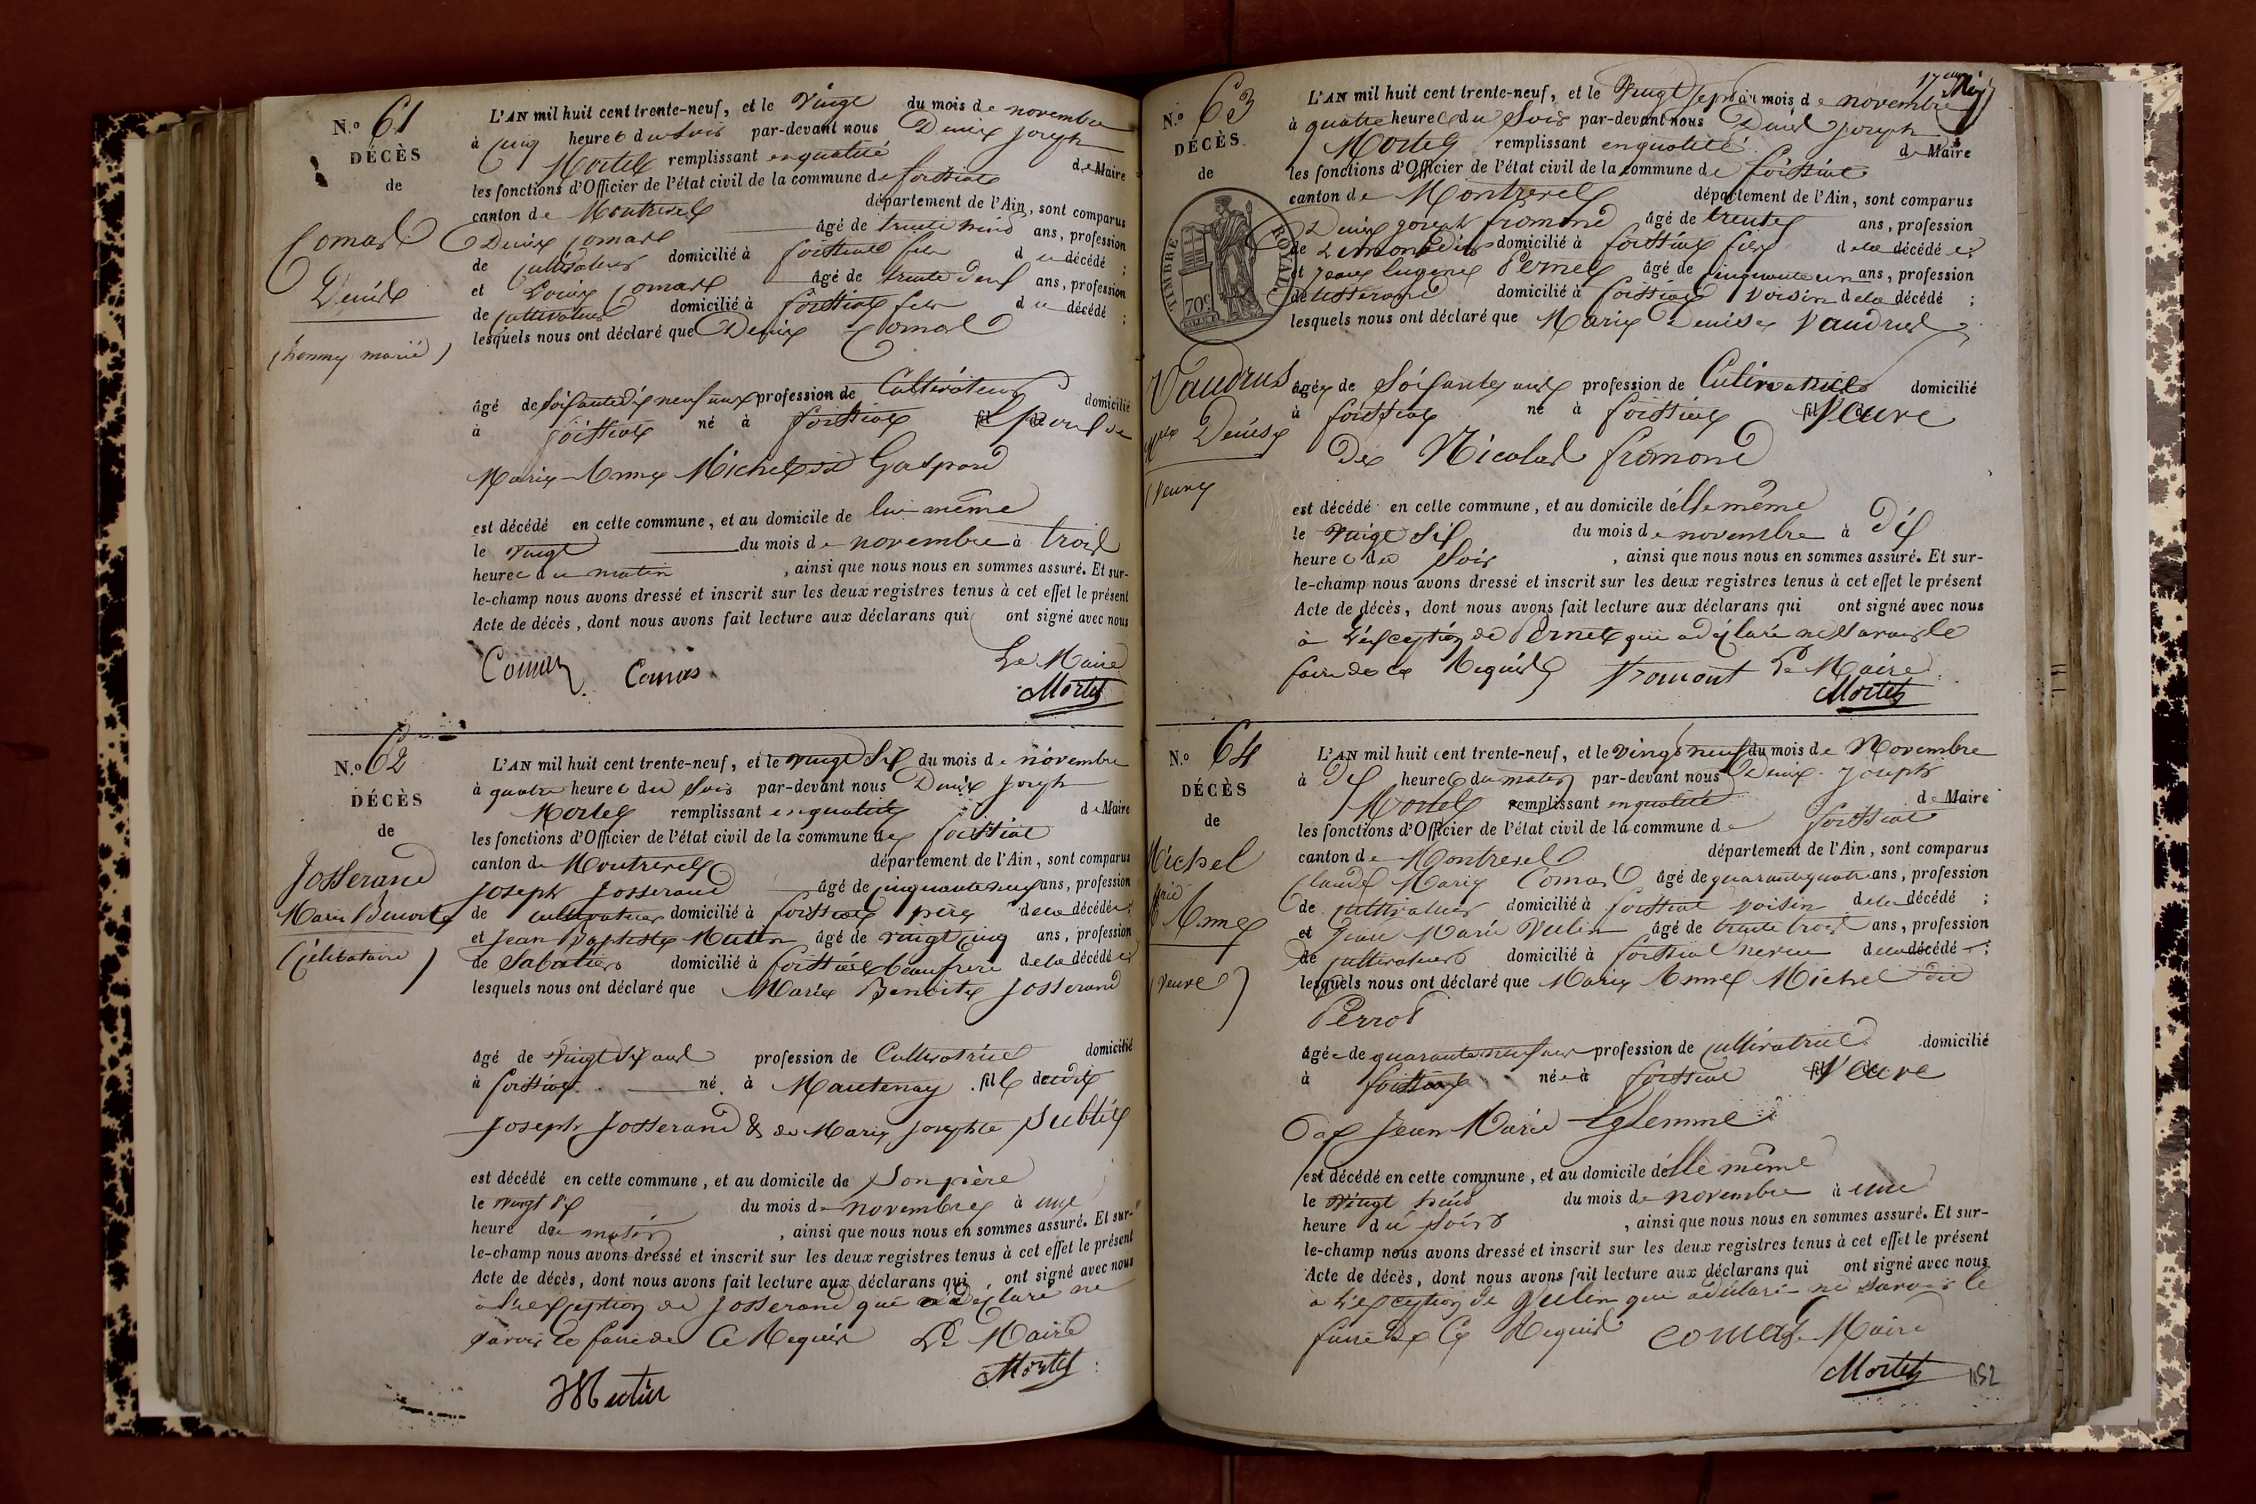 N.o 61
DÉCÈS
de
Comas
Denis
(homme marié)
L'AN mil huit cent trente-neuf, et le vingt du mois de novembre
à cinq heures du soir par-devant nous Denis Joseph
Mortel remplissant en qualité de Maire
les fonctions d'Officier de l'état civil de la commune de foissiat
canton de Montrevel département de l'Ain, sont comparus
Denis Comas âgé de trente trois ans, profession
de cultivateur domicilié à foissiat fils du décédé ;
et Louis Comas âgé de trente deux ans, profession
de cultivateur domicilié à foissiat fils du décédé ;
lesquels nous ont déclaré que Denis Comas
âgé de soisante dix neuf ans profession de Cultivateur domicilié
à foissiat né à foissiat Epoux de
Marie Anne Michel dit Gaspard
est décédé en cette commune, et au domicile de lui même
le vingt du mois de novembre à trois
heures du matin, ainsi que nous nous en sommes assuré. Et sur-
le-champ nous avons dressé et inscrit sur les deux registres tenus à cet effet le présent
Acte de décès, dont nous avons fait lecture aux déclarans qui ont signé avec nous
Le Maire
Comas Comas Mortel
N.o 62
DÉCÈS
de
Josserand
Marie Benoite
(Célibataire)
L'AN mil huit cent trente-neuf, et le vingt six du mois de novembre
à quatre heures du soir par-devant nous Denis Joseph
Mortel remplissant en qualité de Maire
les fonctions d'Officier de l'état civil de la commune de foissiat
canton de Montrevel département de l'Ain, sont comparus
Joseph Josserand âgé de cinquante neuf ans, profession
de cultivateur domicilié à foissiat père de la décédée ;
et Jean Baptiste Mutin âgé de vingt cinq ans, profession
de Sabotier domicilié à foissiat beaufrere de la décédée ;
lesquels nous ont déclaré que Marie Benoite Josserand
âgé de vingt six ans profession de Cultivatrice domicilié
à foissiat né à Mantenay fille dudit
Joseph Josserand & de Marie Josephte Sublet
est décédé en cette commune, et au domicile de Son père
le vingt six du mois de novembre à une
heure du matin, ainsi que nous nous en sommes assuré. Et sur-
le-champ nous avons dressé et inscrit sur les deux registres tenus à cet effet le présent
Acte de décès, dont nous avons fait lecture aux déclarans qui ont signé avec nous
à l'exception de Josserand qui a déclaré ne
savoir le faire de Ce Requis Le Maire
JB Mutin Mortel
17eme
N.o 63
DÉCÈS
de
TIMBRE ROYAL
70c
Vaudrus
Denise
(Veuve
L'AN mil huit cent trente-neuf, et le Vingt Sept du mois de novembre
à quatre heures du Soir par-devant nous Denis Joseph
Mortel remplissant en qualité de Maire
les fonctions d'Officier de l'état civil de la commune de foissiat
canton de Montrevel département de l'Ain, sont comparus
Denis Joseph fromond âgé de trente ans, profession
de domicilié à foissiat fils de la décédée ;
et Pernet âgé de cinquante un ans, profession
de tisserand domicilié à foissiat voisin de la décédé ;
lesquels nous ont déclaré que Marie Denise Vaudrus
âgée de Soisante ans profession de Cultivatrice domicilié
à foissiat né à foissiat Veuve
De Nicolas fromond
est décédé en cette commune, et au domicile d'elle même
le vingt Six du mois de novembre à dix
heures du Soir, ainsi que nous nous en sommes assuré. Et sur-
le-champ nous avons dressé et inscrit sur les deux registres tenus à cet effet le présent
Acte de décès, dont nous avons fait lecture aux déclarans qui ont signé avec nous
à l'exception de Pernet qui a déclaré ne Savoir le
faire de ce Requis fromont Le Maire
Mortel
N.o 64
DÉCÈS
de
Michel
Anne
(Veuve)
L'AN mil huit cent trente-neuf, et le vingt neuf du mois de Novembre
à dix heures du matin par-devant nous Denis Joseph
Mortel remplissant en qualité de Maire
les fonctions d'Officier de l'état civil de la commune de foissiat
canton de Montrevel département de l'Ain, sont comparus
Claude Marie Comas âgé de quarante quatre ans, profession
de cultivateur domicilié à foissiat voisin de la décédé ;
et Jean Marie Vulin âgé de trente trois ans, profession
de cultivateur domicilié à foissiat neveu de la décédé ;
lesquels nous ont déclaré que Marie Anne Michel dit
Perrod
âgée de quarante neuf ans profession de cultivatrice domicilié
à foissiat née à foissiat Veuve
de Jean Marie
est décédé en cette commune, et au domicile d'elle même
le vingt huit du mois de novembre à une
heure du Soir, ainsi que nous nous en sommes assuré. Et sur-
le-champ nous avons dressé et inscrit sur les deux registres tenus à cet effet le présent
Acte de décès, dont nous avons fait lecture aux déclarans qui ont signé avec nous
à l'exception de Vulin qui a déclaré ne savoir le
faire de Ce Requis comas Le Maire
Mortel
152